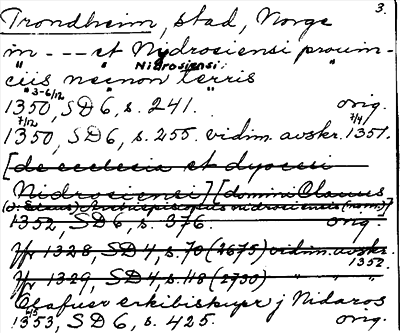 3.
Trondheim, stad, Norge
in --- et Nydrosiensi prouin-
" " Nidrosiensi: "
ciis necnon terris
" 3-6/12 "
1350, SD 6, s. 241. orig.
7/12 7/4
1350, SD 6, s. 255. vidim. avskr. 1351.
[de ecclesia et dyocesi
Nidrosiensi] [domini Olauus
archiepiscopus nidrosiensis
1352, SD 6, s. 376. orig.
Jfr 1328, SD 4, s. 70 (2675) vidim. avskr.
1352.
Jfr 1329, SD 4, s. 118 (2750) " " "
Olafuer erkibiskuper j Nidaros
6/5
1353, SD 6, s. 425. orig.